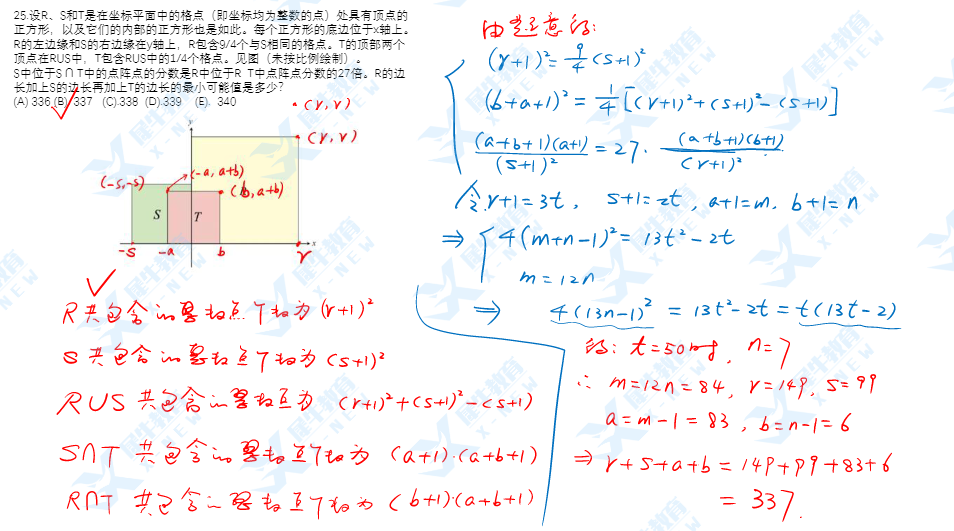 25.设R、S和T是在坐标平面中的格点（即坐标均为整数的点）处具有顶点的
正方形，以及它们的内部的正方形也是如此。每个正方形的底边位于x轴上。
R的左边缘和S的右边缘在y轴上，R包含9/4个与S相同的格点。T的顶部两个
顶点在RUS中，T包含RUS中的1/4个格点。见图（未按比例绘制）。
S中位于S∩T中的点阵点的分数是R中位于R T中点阵点分数的27倍。R的边
长加上S的边长再加上T的边长的最小可能值是多少?
(A) 336 (B) 337 (C).338 (D).339 (E). 340
(r, r)
y
(r, r)
(-s,-s)
(-a, a+b)
(b, a+b)
S
T
x
-s
-a
b
r
R共包含的整数点个数为(r+1)²
S 共包含的整数点个数为(s+1)²
RUS 共包含的整数点为 (r+1)²+(s+1)²-(s+1)
S∩T 共包含的整数点个数为 (a+1)·(a+b+1)
R∩T 共包含的整数点个数为 (b+1)·(a+b+1)
由题意得:
(r+1)²=9/4(s+1)²
(b+a+1)²=1/4[(r+1)²+(s+1)²-(s+1)]
(a+b+1)(a+1)/(s+1)²=27·(a+b+1)(b+1)/(r+1)²
令r+1=3t, s+1=2t, a+1=m, b+1=n
⇒ 4(m+n-1)²=13t²-2t
m=12n
⇒ 4(13n-1)²=13t²-2t=t(13t-2)
得: t=50时, n=7
∴ m=12n=84, r=149, s=99
a=m-1=83, b=n-1=6
⇒ r+s+a+b=149+99+83+6
=337.
犀牛教育
X-NEW